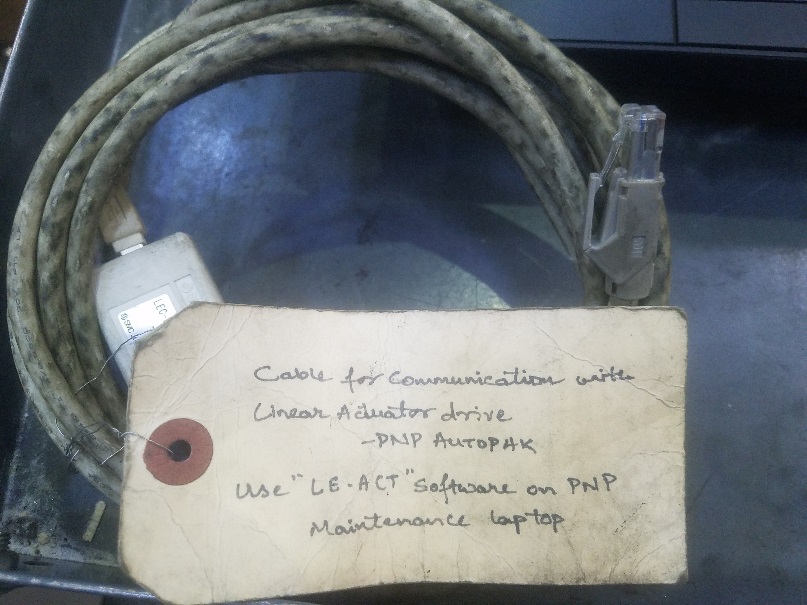 LEC-
SMC
Cable for Communication with
Linear Actuator drive
-PNP AUTOPAK
Use "LE-ACT" Software on PNP
Maintenance laptop